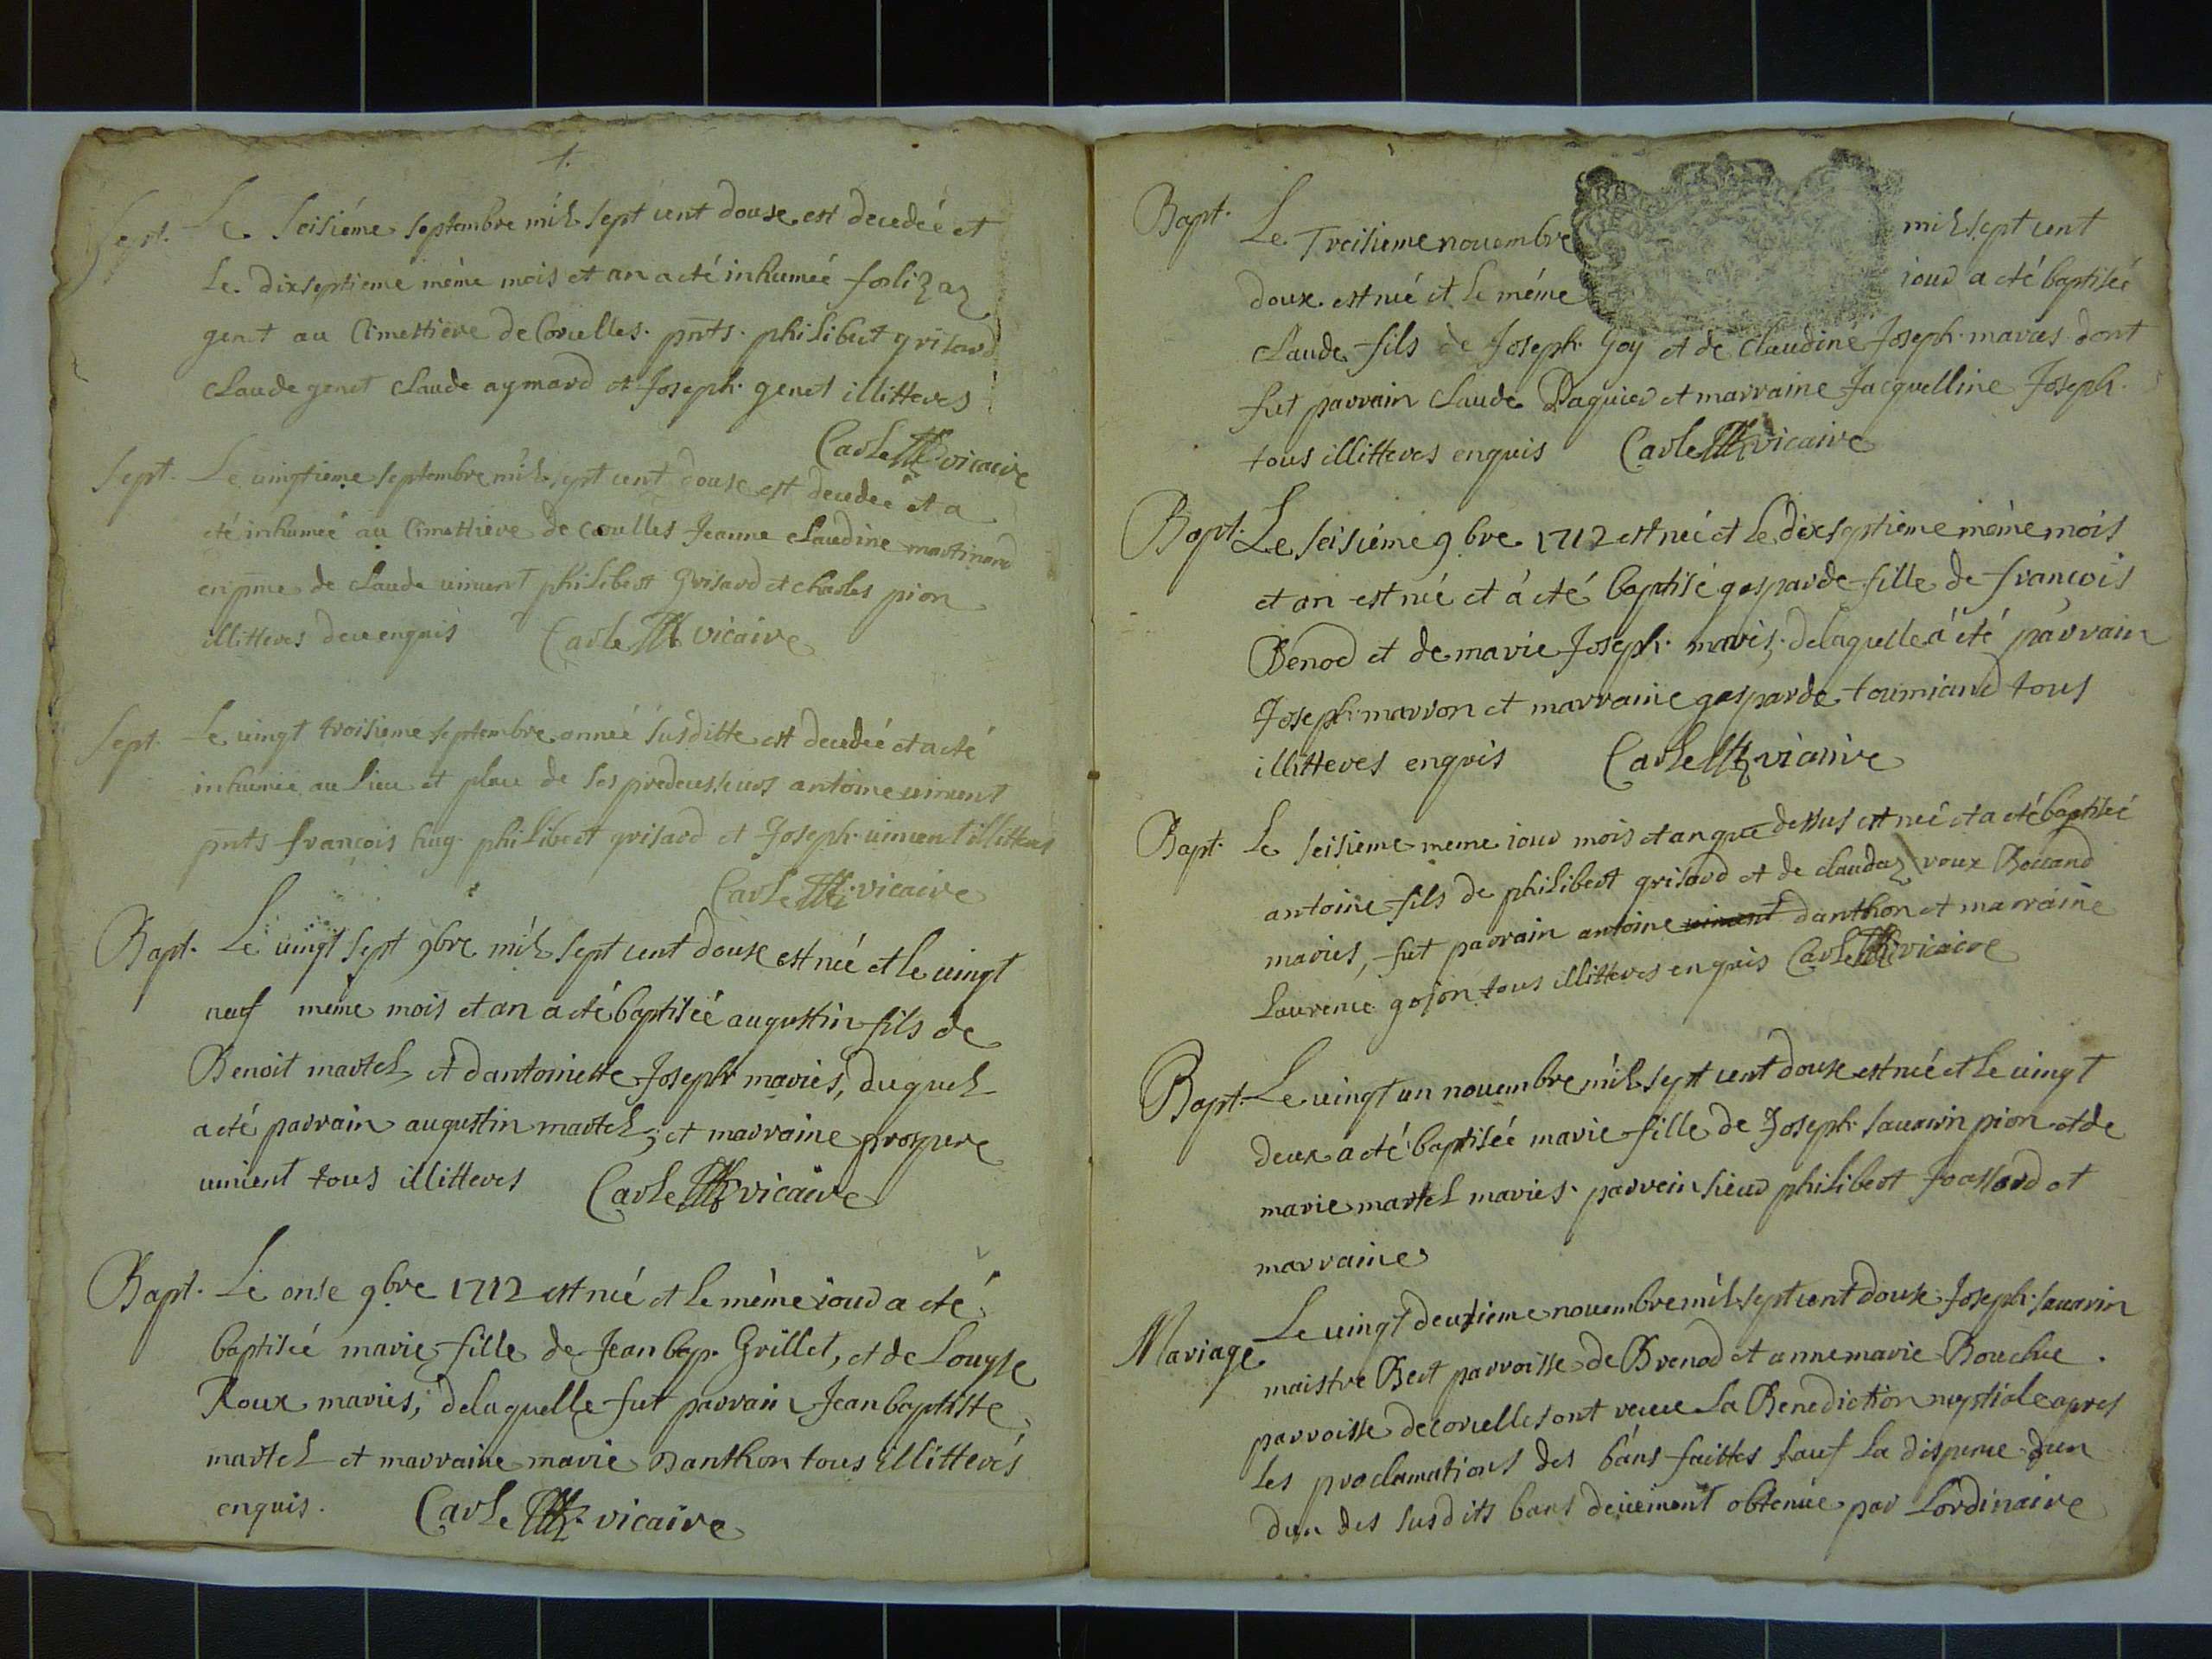 Sept. Le Seisiéme septembre mil sept cent douse est decedeé et
le dixseptieme méme mois et an a eté inhumeé
genet au Cimettiere de Corcelles. pnts. philibert grisard
Claude genet Claude aymard et Joseph genet illitteres
Carle vicaire
Sept. Le vingtieme septembre mil sept cent douse est decedeé et a
eté inhumeé au Cimettiere de corcelles Jeanne Claudine martinand
en pnce de Claude vincent philibert Grisard et Charles pion
illitteres enquis Carle vicaire
Sept. Le vingt troisieme septembre anneé susditte est decedeé et a eté
inhumeé au lieu et place de ses predecesseurs antoine vincent
pnts françois hug philibert grisard et Joseph vincent illitteres
Carle vicaire
Bapt. Le vingt sept 9bre mil sept cent douse est neé et le vingt
neuf méme mois et an a eté baptiseé augustin fils de
Benoit martel et dantoinette Joseph mariés, duquel
a eté parrain augustin martel; et marraine prospere
vincent tous illitteres Carle vicaire
Bapt. Le onse 9bre 1712 est neé et le méme iour a eté
baptiseé marie fille de Jean bap. Grillet, et de Louyse
Roux mariés; delaquelle fut parrain Jean baptiste
martel et marraine marie Danthon tous illitterés
enquis. Carle vicaire
Bapt. Le Treisieme novembre mil sept cent
douse est neé et le méme iour a eté baptiseé
Claude fils de Joseph Goy et de Claudine Joseph mariés dont
fut parrain Claude Paquier et marraine Jacquelline Joseph
tous illitteres enquis Carle vicaire
Bapt. Le seisiéme 9bre 1712 est neé et le dixseptieme méme mois
et an est neé et á eté baptisé gasparde fille de françois
Benod et de marie Joseph mariés; delaquelle á eté parrain
Joseph marron et marraine gasparde tous
illitteres enquis Carle vicaire
Bapt. Le seisieme meme iour mois et an que dessus est neé et a eté baptiseé
antoine fils de philibert grisard et de claudaz roux
mariés, fut parrain antoine vincent danthon et marraine
Laurence gojon tous illitteres enquis Carle vicaire
Bapt. Le vingt un novembre mil sept cent douse est neé et le vingt
deux a eté baptiseé marie fille de Joseph savarin pion et de
marie martel mariés. parrein sieur philibert et
marraine
Mariage Le vingt deuxieme novembre mil sept cent douse Joseph savarin
maistre Bert parroisse de Brenod et anne marie Bouchue.
parroisse de corcelles ont receu la Benediction nuptiale apres
les proclamations des bans faittes sauf la dispence dun
dun des susdits bans deüement obtenüe par Lordinaire